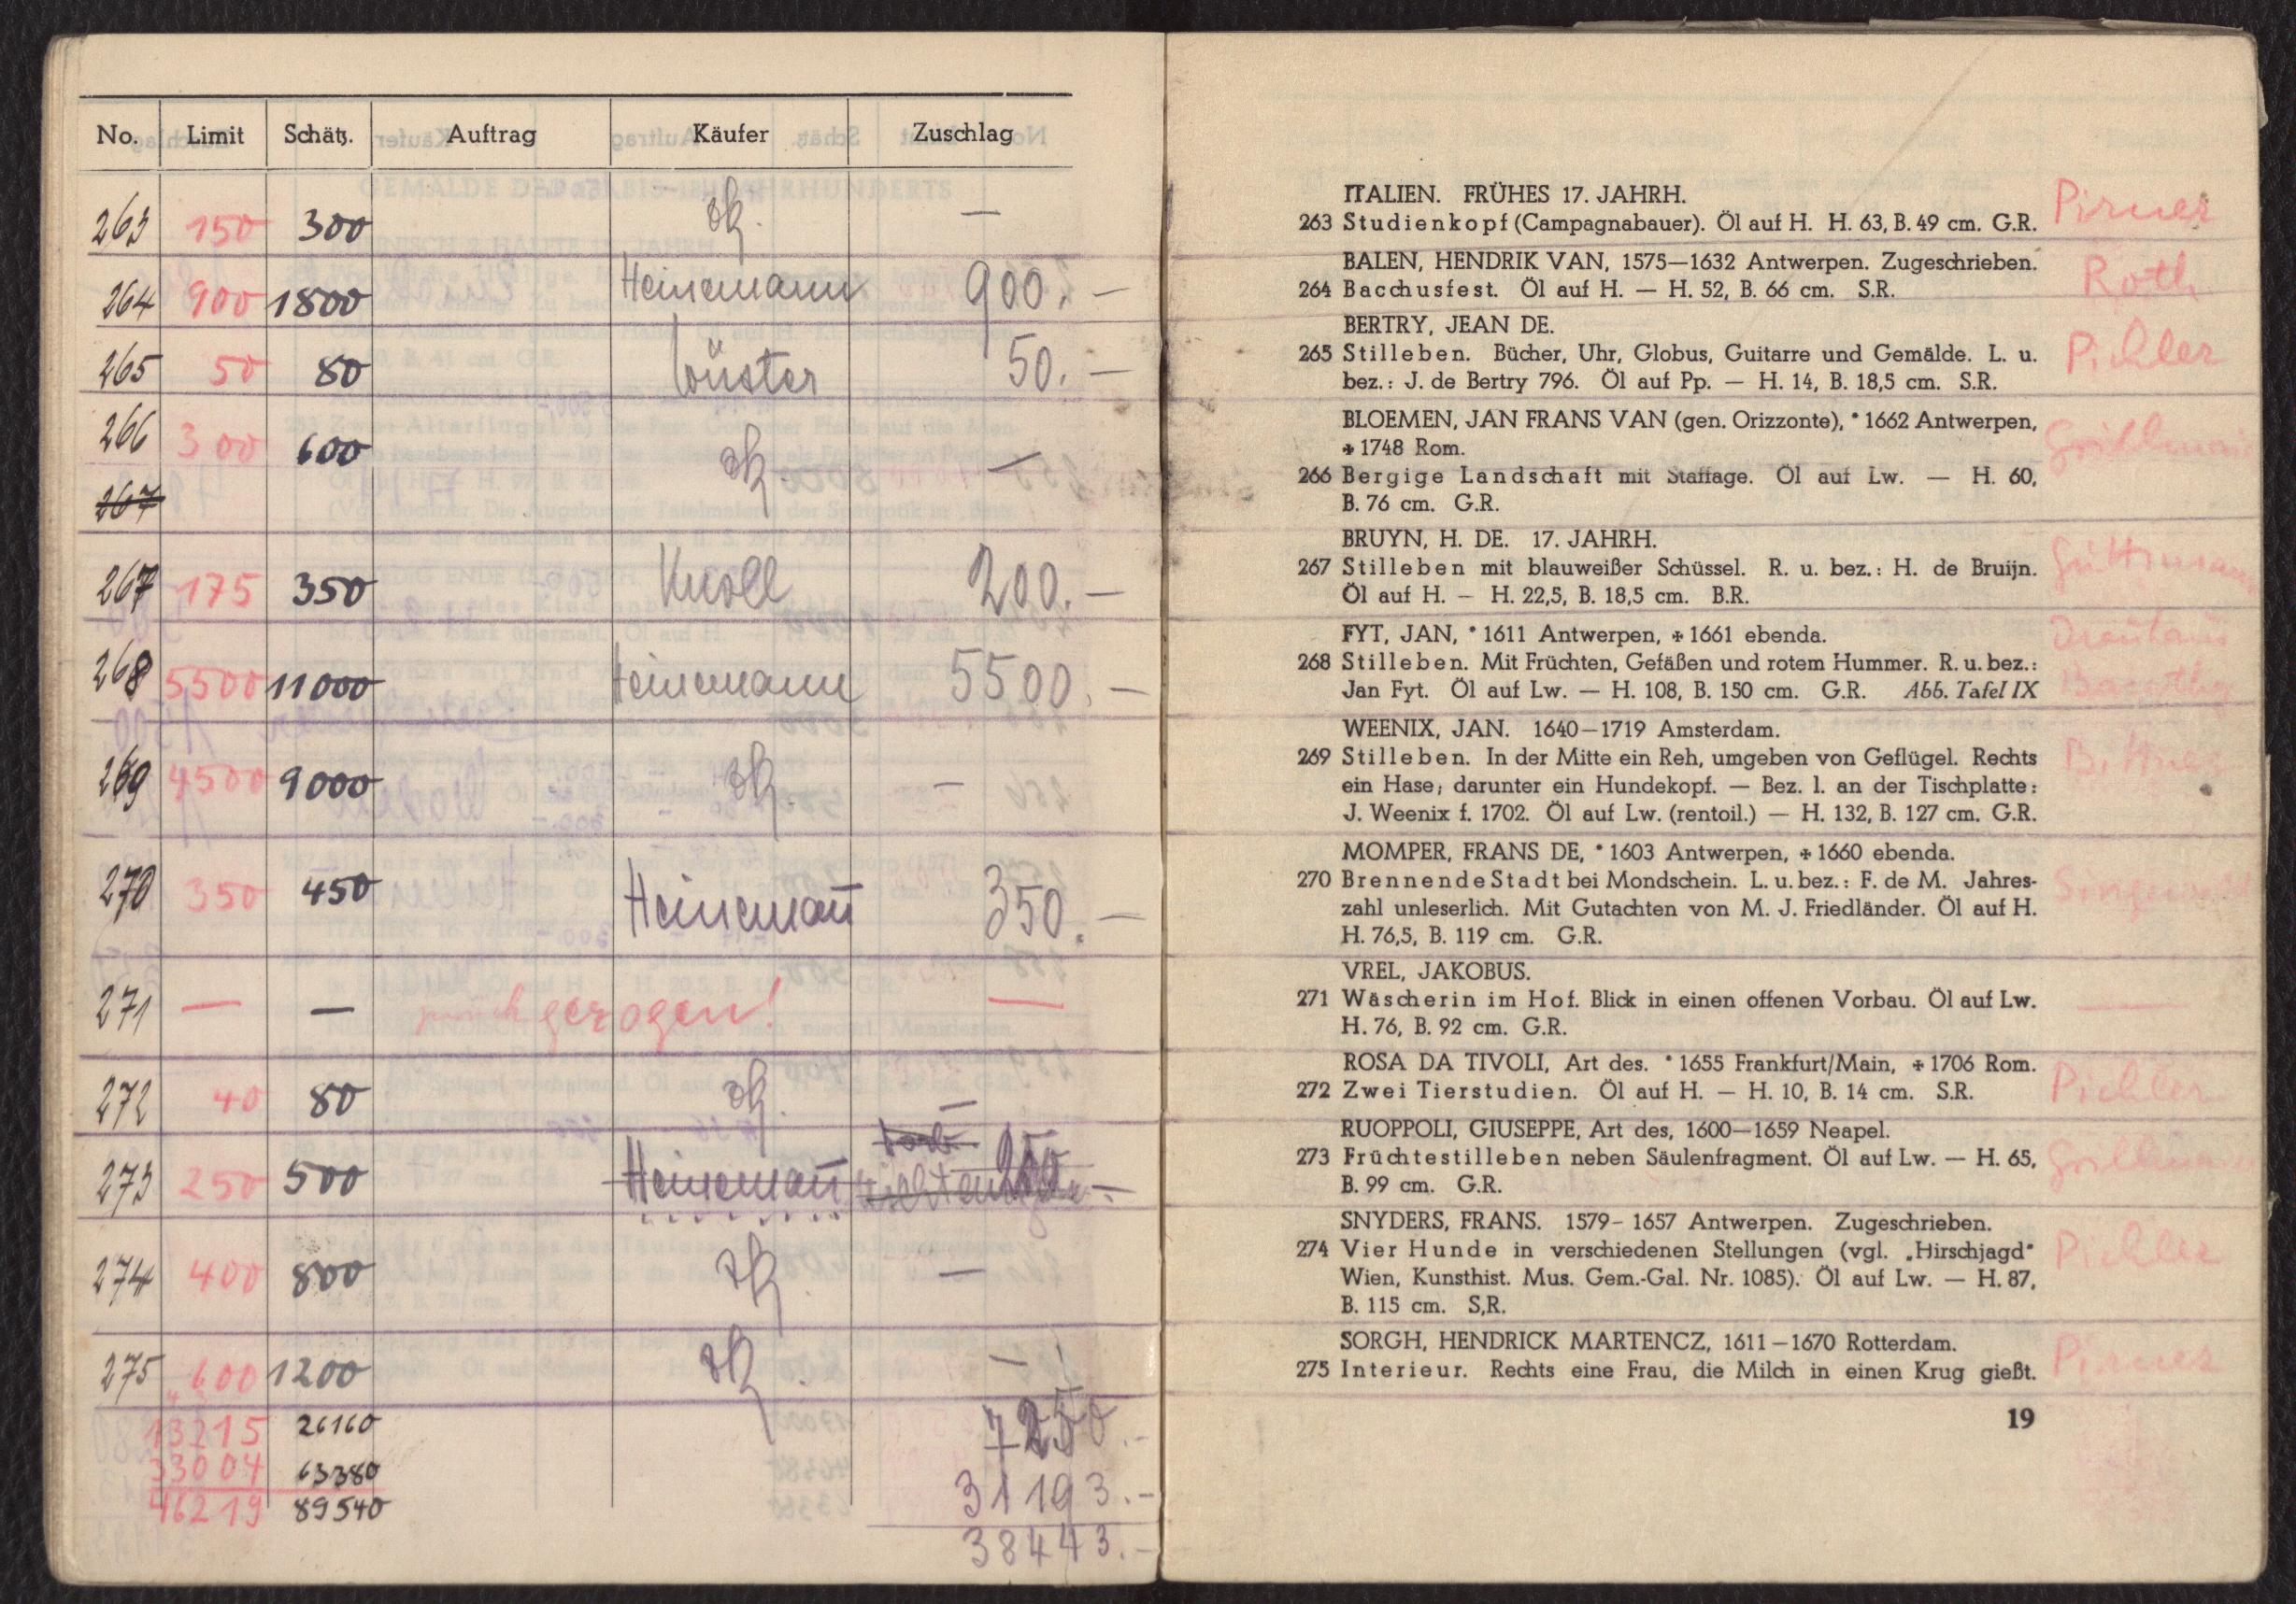 No. Limit Schätz. Auftrag Käufer Zuschlag
263 150 300 —
264 900 1800 Heinemann 900.—
265 50 80 Wüster 50.—
266 300 600 —
267
267 175 350 Knoll 200.—
268 5500 11000 Heinemann 5500.—
269 4500 9000 —
270 350 450 Heinemann̄ 350.—
271 — — zurückgezogen! —
272 40 80 —
273 250 500 Heinemann̄ 250.—
274 400 800 —
275 600 1200 —
13215 26160 7250.—
33004 63380 31193.—
46219 89540 38443.—
ITALIEN. FRÜHES 17. JAHRH.
263 Studienkopf (Campagnabauer). Öl auf H. H. 63, B. 49 cm. G.R. Pirner
BALEN, HENDRIK VAN, 1575—1632 Antwerpen. Zugeschrieben.
264 Bacchusfest. Öl auf H. — H. 52, B. 66 cm. S.R. Roth
BERTRY, JEAN DE.
265 Stilleben. Bücher, Uhr, Globus, Guitarre und Gemälde. L. u. Pichler
bez.: J. de Bertry 796. Öl auf Pp. — H. 14, B. 18,5 cm. S.R.
BLOEMEN, JAN FRANS VAN (gen. Orizzonte), * 1662 Antwerpen,
✠ 1748 Rom.
266 Bergige Landschaft mit Staffage. Öl auf Lw. — H. 60,
B. 76 cm. G.R.
BRUYN, H. DE. 17. JAHRH.
267 Stilleben mit blauweißer Schüssel. R. u. bez.: H. de Bruijn.
Öl auf H. — H. 22,5, B. 18,5 cm. B.R.
FYT, JAN, * 1611 Antwerpen, ✠ 1661 ebenda.
268 Stilleben. Mit Früchten, Gefäßen und rotem Hummer. R. u. bez.:
Jan Fyt. Öl auf Lw. — H. 108, B. 150 cm. G.R. Abb. Tafel IX
WEENIX, JAN. 1640—1719 Amsterdam.
269 Stilleben. In der Mitte ein Reh, umgeben von Geflügel. Rechts
ein Hase; darunter ein Hundekopf. — Bez. l. an der Tischplatte:
J. Weenix f. 1702. Öl auf Lw. (rentoil.) — H. 132, B. 127 cm. G.R.
MOMPER, FRANS DE, * 1603 Antwerpen, ✠ 1660 ebenda.
270 Brennende Stadt bei Mondschein. L. u. bez.: F. de M. Jahres-
zahl unleserlich. Mit Gutachten von M. J. Friedländer. Öl auf H.
H. 76,5, B. 119 cm. G.R.
VREL, JAKOBUS.
271 Wäscherin im Hof. Blick in einen offenen Vorbau. Öl auf Lw. —
H. 76, B. 92 cm. G.R.
ROSA DA TIVOLI, Art des. * 1655 Frankfurt/Main, ✠ 1706 Rom.
272 Zwei Tierstudien. Öl auf H. — H. 10, B. 14 cm. S.R. Pichler
RUOPPOLI, GIUSEPPE, Art des, 1600—1659 Neapel.
273 Früchtestilleben neben Säulenfragment. Öl auf Lw. — H. 65,
B. 99 cm. G.R.
SNYDERS, FRANS. 1579– 1657 Antwerpen. Zugeschrieben.
274 Vier Hunde in verschiedenen Stellungen (vgl. „Hirschjagd" Pichler
Wien, Kunsthist. Mus. Gem.-Gal. Nr. 1085). Öl auf Lw. — H. 87,
B. 115 cm. S,R.
SORGH, HENDRICK MARTENCZ, 1611–1670 Rotterdam.
275 Interieur. Rechts eine Frau, die Milch in einen Krug gießt. Pirner
19